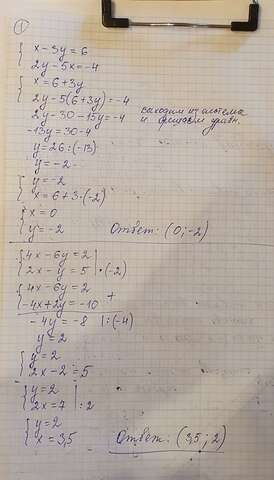 1
x - 3y = 6
2y - 5x = -4
x = 6 + 3y
2y - 5(6 + 3y) = -4
выходим из системы
и решаем уравн.
2y - 30 - 15y = -4
-13y = 30 - 4
y = 26 : (-13)
y = -2
y = -2
x = 6 + 3·(-2)
x = 0
y = -2
Ответ: (0; -2)
4x - 6y = 2
2x - y = 5 | ·(-2)
4x - 6y = 2
+
-4x + 2y = -10
-4y = -8 | : (-4)
y = 2
y = 2
2x - 2 = 5
y = 2
2x = 7 | : 2
y = 2
x = 3,5
Ответ: (3,5; 2)